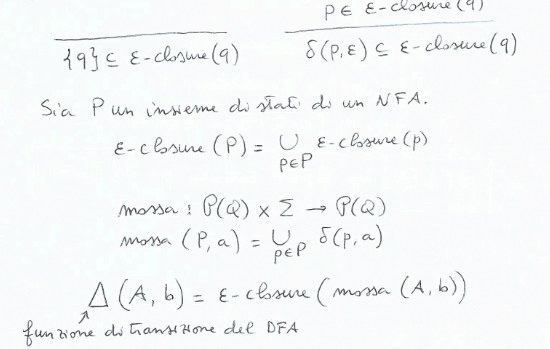 p ∈ ε-closure(q)
{q} ⊆ ε-closure(q)    δ(p,ε) ⊆ ε-closure(q)
Sia P un insieme di stati di un NFA.
ε-closure(P) = ∪ ε-closure(p)
p∈P
mossa : P(Q) × Σ → P(Q)
mossa (P,a) = ∪ δ(p,a)
p∈P
Δ(A,b) = ε-closure(mossa(A,b))
funzione di transizione del DFA